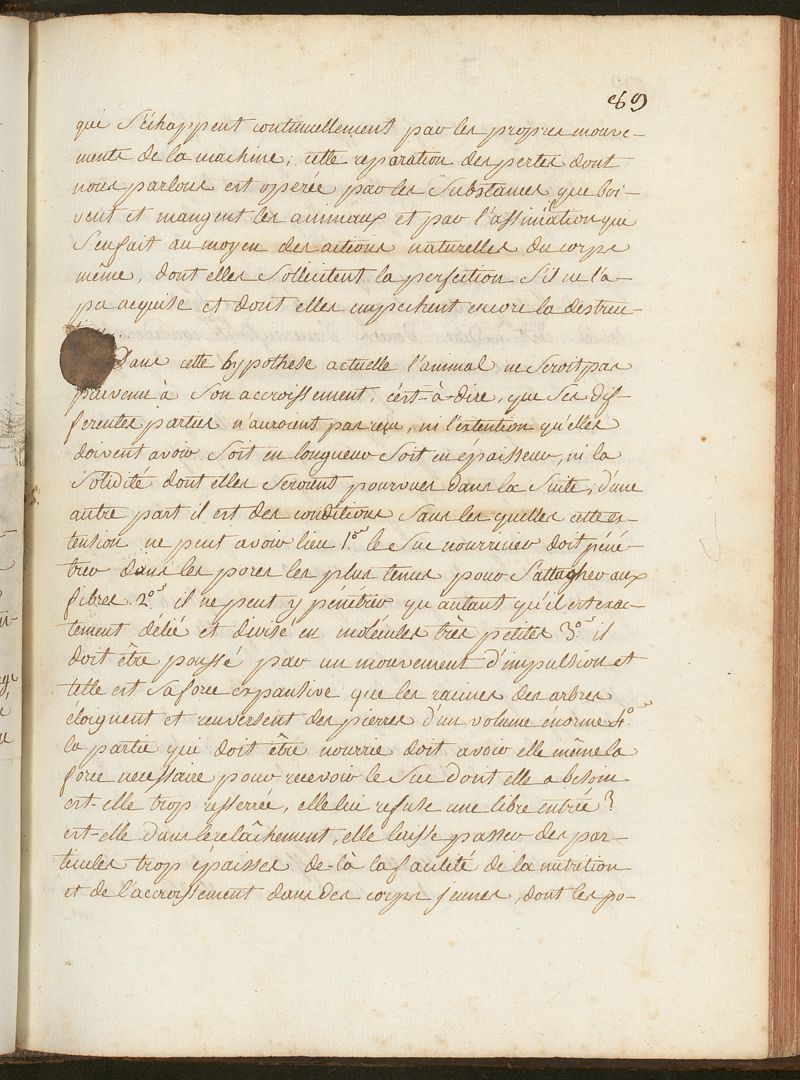 89
que s'échappent continuellement par les propres mouve-
mente de la machine; cette reparation des pertes dont
nous parlons est opérée par les substances que boi-
vent et mangent les animaux et par l'assimilation que
s'en fait au moyen des actions naturelles du corps
même, dont elles sollicitent la perfection s'il ne l'a
pa acquise et dont elles empechent encore la destruc-
Dans cette hypothese actuelle l'animal ne seroit pas
parvenu à son accroissement, c'est-à-dire, que ses dif-
ferentes parties n'auroient pas reçu, ni l'extention qu'elles
doivent avoir soit en longueur soit en épaisseur, ni la
solidité dont elles seront pourvues dans la suite; d'une
autre part il est des conditions sans les quelles cette ex-
tension ne peut avoir lieu 1.° le suc nourricier doit péné-
trer dans les pores les plus tenus pour s'attacher aux
fibres. 2.° il ne peut y pénétrer qu'autant qu'il est exac-
tement délié et divisé en molécules très petites 3.° il
doit être poussé par un mouvement d'impulsion et
telle est sa force expansive que les racines des arbres
éloignent et renversent des pierres d'un volume énorme 4.°
la partie qui doit être nourrie doit avoir elle même la
force necessaire pour recevoir le suc dont elle a besoin
est-elle trop resserrée, elle lui refuse une libre entrée?
est-elle dans le relâchement, elle laisse passer des par-
ticules trop épaisses de-là la faculté de la nutrition
et de l'accroissement dans des corps jeunes, dont les po-